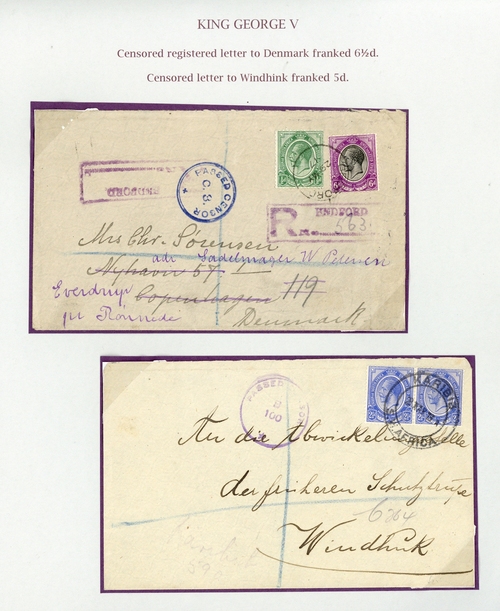 KING GEORGE V
Censored registered letter to Denmark franked 6½d.
Censored letter to Windhink franked 5d.
PASSED CENSOR
C. 3.
ENDFORD
R
ENDFORD
No. 563
Mrs Chr. Sørensen
adr Sadelmager W Petersen
Nyhavn 57 I
Everdrup Copenhagen 119
pr Rønnede Denmark
PASSED
B
100
KARIBIB
S.W. AFRICA
An die Abwickelungsstelle
der früheren Schutztruppe
6264
Windhuk